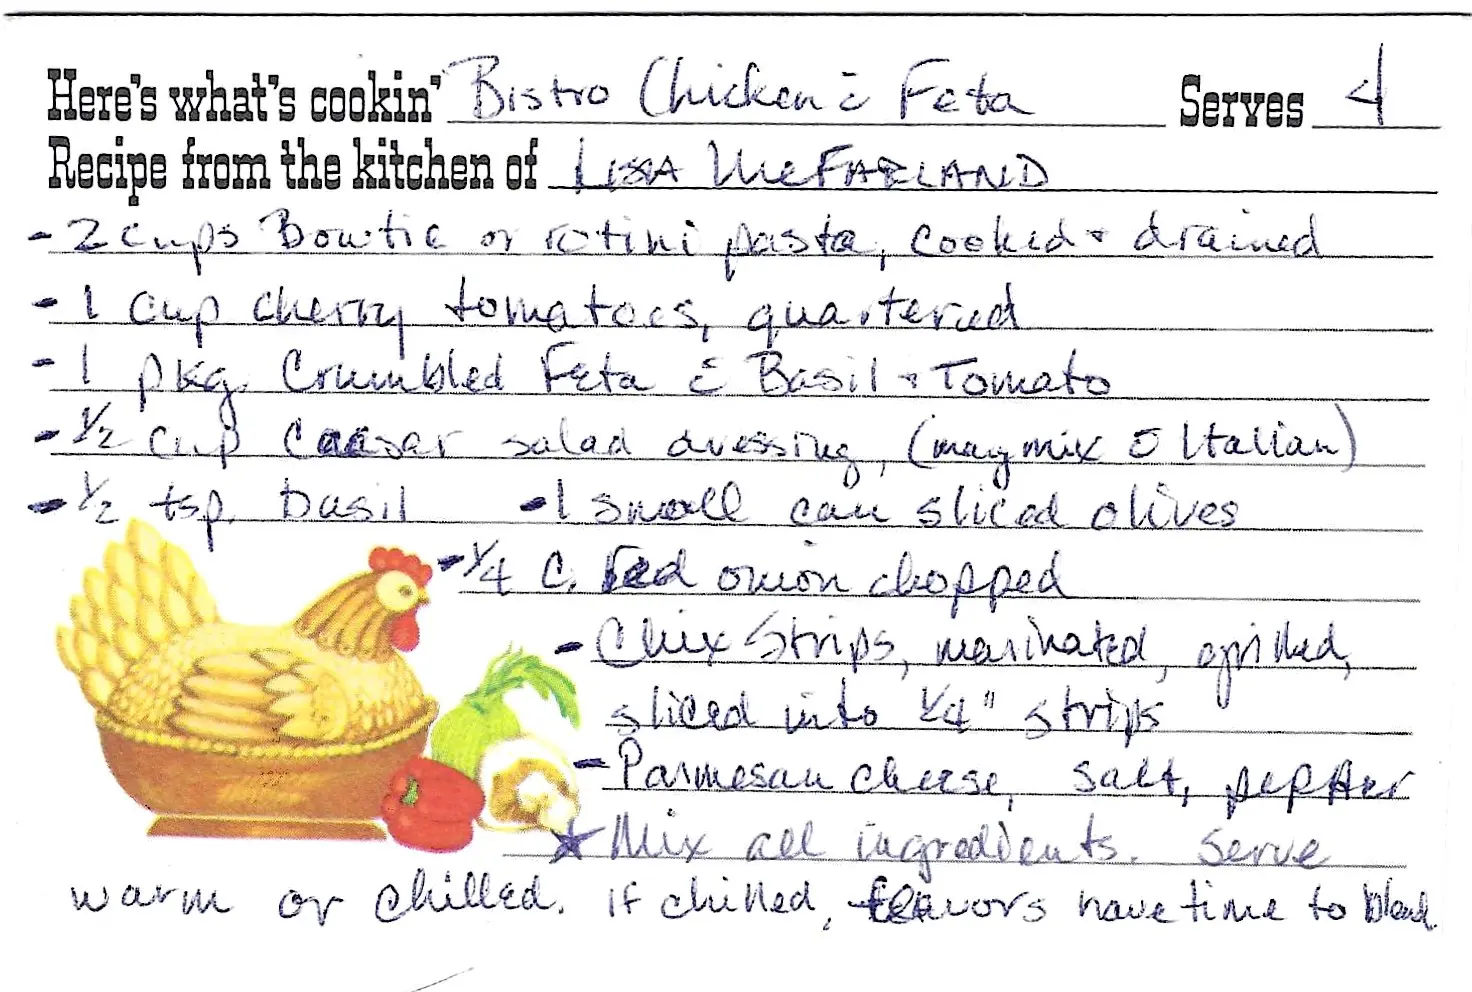 Here's what's cookin' Bistro Chicken c̄ Feta Serves 4
Recipe from the kitchen of LISA McFARLAND
- 2 cups Bowtie or rotini pasta, cooked + drained
- 1 cup cherry tomatoes, quartered
- 1 pkg. Crumbled Feta c̄ Basil + Tomato
- 1/2 cup Caesar salad dressing, (may mix c̄ Italian)
- 1/2 tsp. basil - 1 small can sliced olives
- 1/4 C. Red onion chopped
- Chix Strips, marinated, grilled,
sliced into 1/4" strips
- Parmesan cheese, salt, pepper
★ Mix all ingredients. Serve
warm or chilled. If chilled, flavors have time to blend.